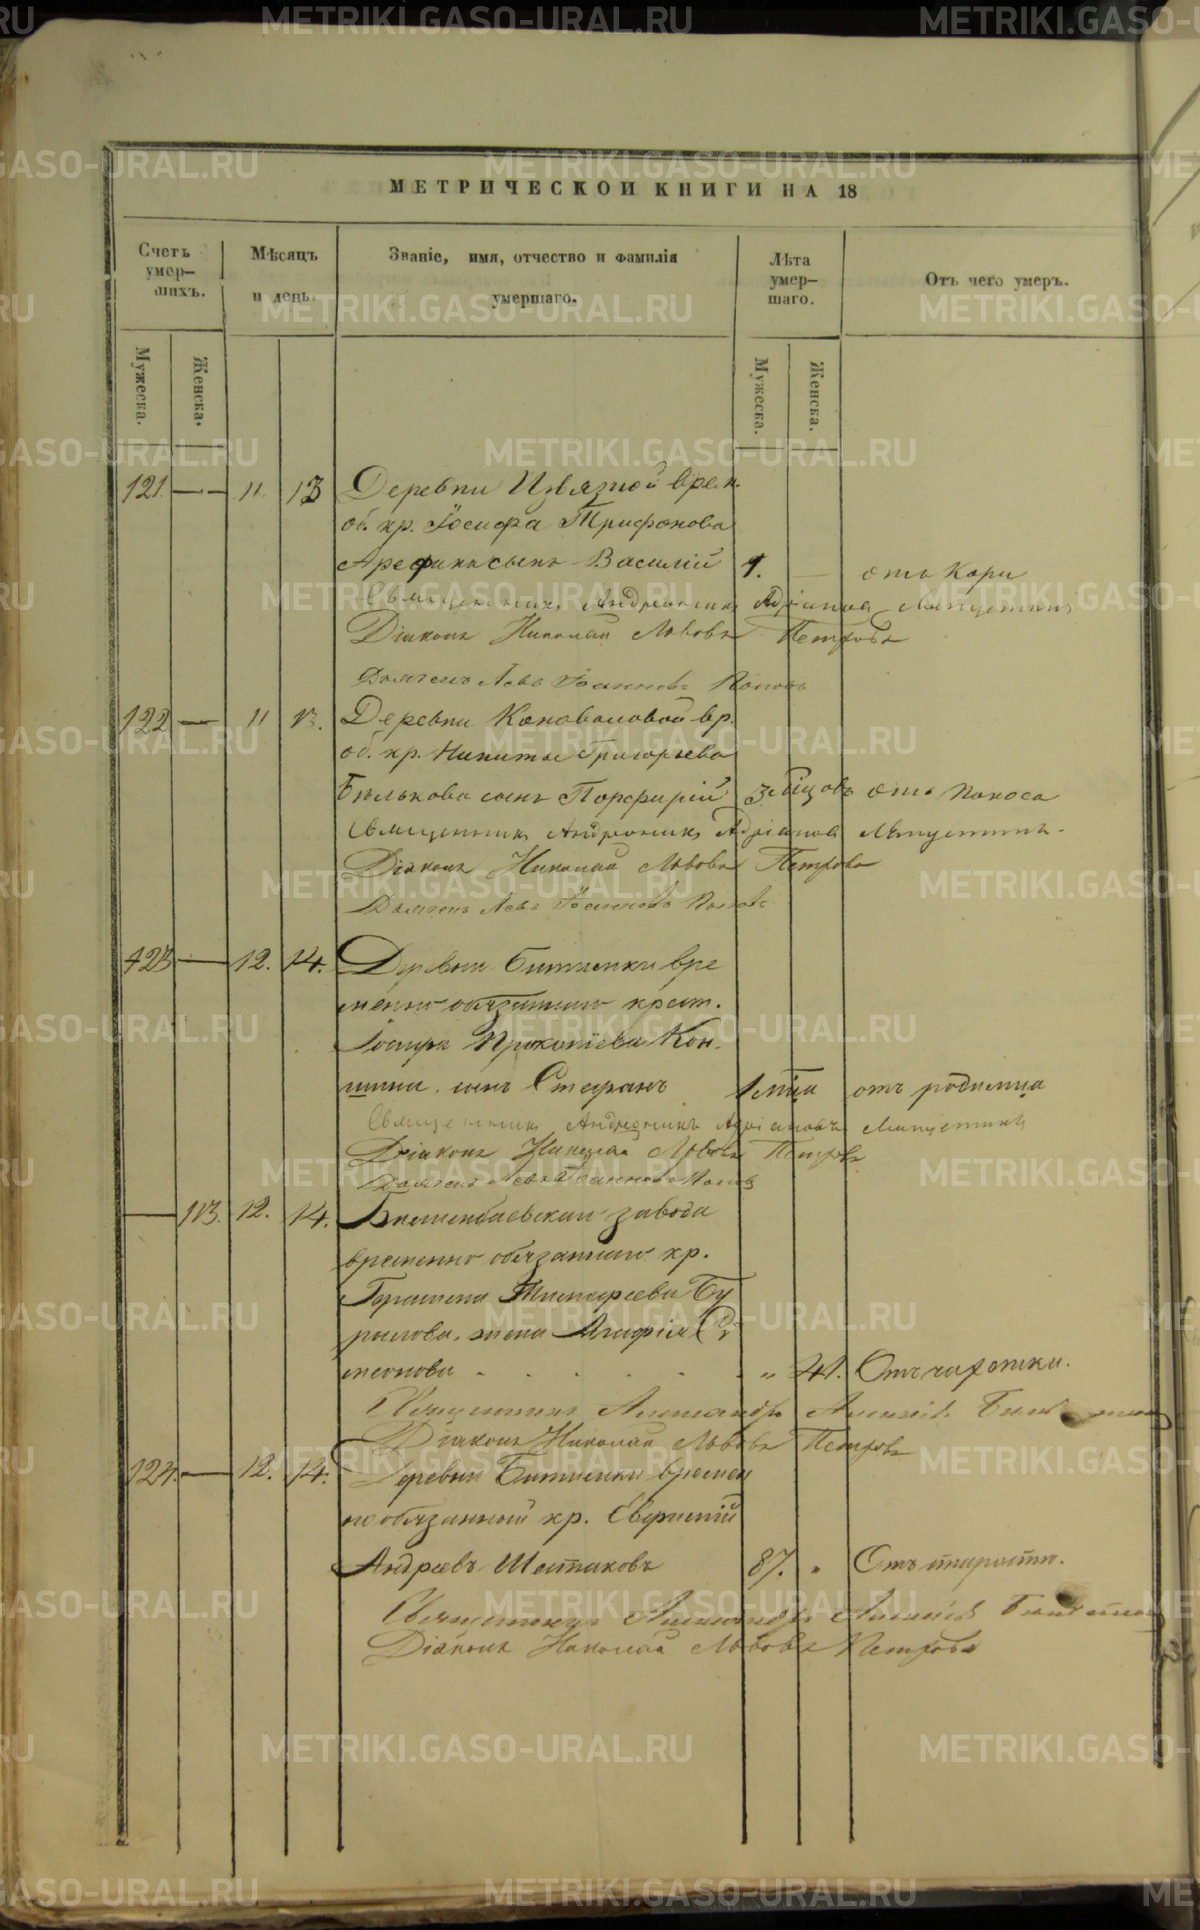 МЕТРИЧЕСКОЙ КНИГИ НА 18
Счетъ умер-шихъ.
Мѣсяцъ и день.
Званіе, имя, отчество и фамилія умершаго.
Лѣта умер-шаго.
Отъ чего умеръ.
Мужеска. Женска. Мужеска. Женска.
121 — 11 13 Деревни Извязной врем.
об. кр. Іосифа Трифонова
Арефина сынъ Василій 1. — отъ Кори
Священникъ Андроникъ Адріановъ Ляпустинъ
Діаконъ Николай Львовъ Петровъ
Дьячекъ Левъ Іоанновъ Поповъ
122 — 11 13. Деревни Коноваловой вр.
об. кр. Никиты Григорьева
Бѣлькова сынъ Порфирій 3 мѣсяцовъ отъ Поноса
Священникъ Андроникъ Адріановъ Ляпустинъ
Діаконъ Николай Львовъ Петровъ
Дьячекъ Левъ Іоанновъ Поповъ
123 — 12. 14. Деревни Битимки вре
менно обязаннаго крест.
Іосифа Прокопіева Кон.
шина сынъ Стефанъ 1 мца отъ родимца
Священникъ Андроникъ Адріановъ Ляпустинъ
Діаконъ Николай Львовъ Петровъ
Дьячекъ Левъ Іоанновъ Поповъ
— 113. 12. 14. Билимбаевскаго завода
временно обязаннаго кр.
Тимофеева Бу
рылова, жена Агафія Си
меонова . . . . . „ 41. Отъ чахотки.
Священникъ Александръ
Діаконъ Николай Львовъ Петровъ
124. — 12. 14. Деревни Битимки времен
но обязанный кр. Евфимій
Андреевъ Шестаковъ 87. „ Отъ старости.
Священникъ Александръ
Діаконъ Николай Львовъ Петровъ
METRIKI.GASO-URAL.RU